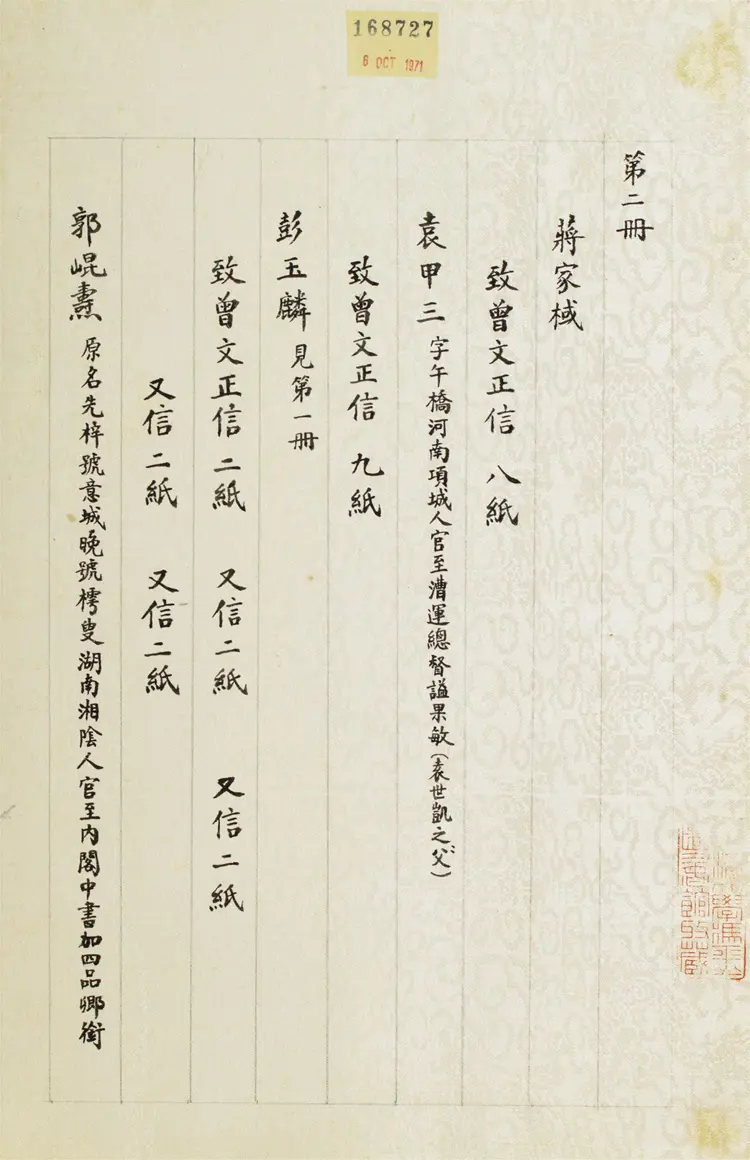 168727
6 OCT 1971
第二冊
蔣家棫
致曾文正信 八紙
袁甲三 字午橋河南項城人官至漕運總督謚果敏(袁世凱之父)
致曾文正信 九紙
彭玉麟 見第一冊
致曾文正信二紙 又信二紙 又信二紙
又信二紙 又信二紙
郭崐燾 原名先梓號意城晚號樗叟湖南湘陰人官至內閣中書加四品卿銜